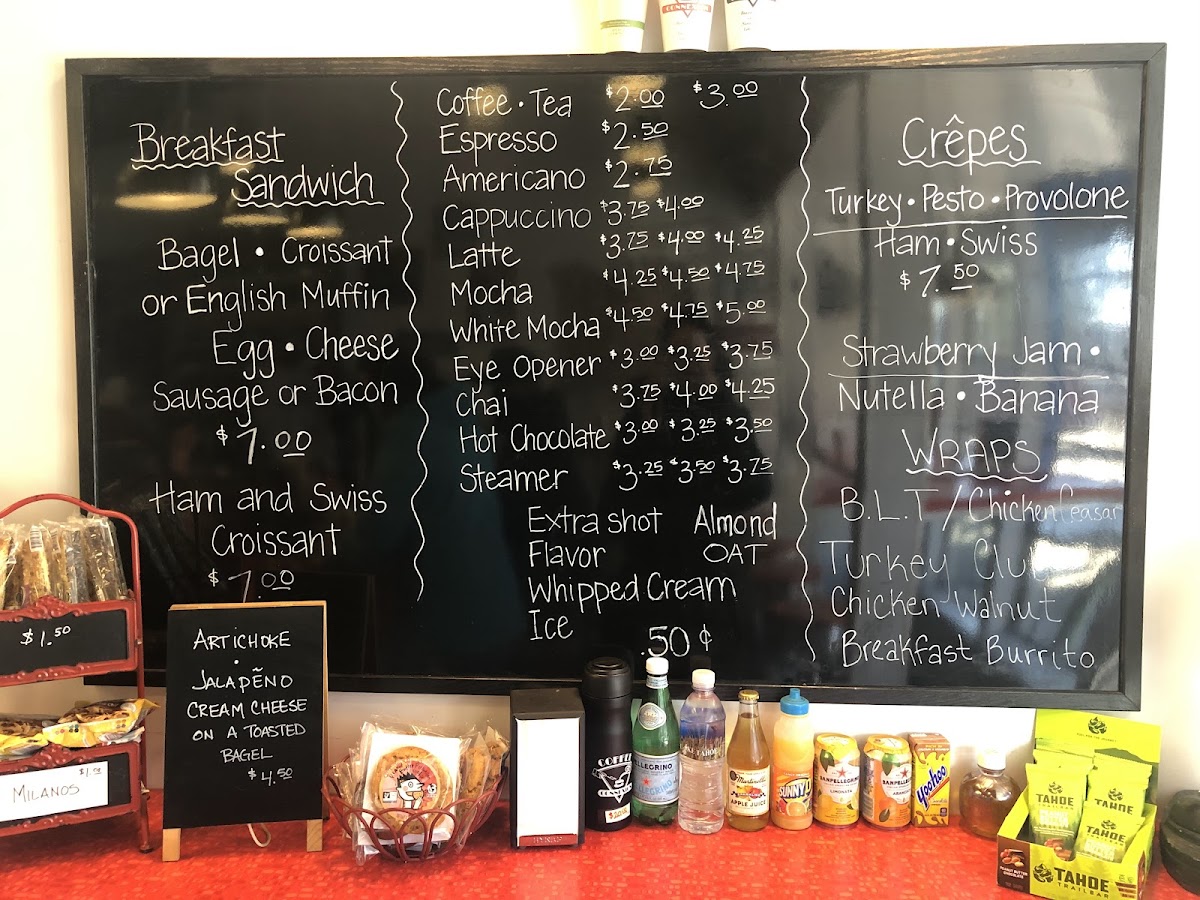 Breakfast
Sandwich
Bagel • Croissant
or English Muffin
Egg • Cheese
Sausage or Bacon
$7.00
Ham and Swiss
Croissant
$7.00
Coffee • Tea $2.00 $3.00
Espresso $2.50
Americano $2.75
Cappuccino $3.75 $4.00
Latte $3.75 $4.00 $4.25
Mocha $4.25 $4.50 $4.75
White Mocha $4.50 $4.75 $5.00
Eye Opener $3.00 $3.25 $3.75
Chai $3.75 $4.00 $4.25
Hot Chocolate $3.00 $3.25 $3.50
Steamer $3.25 $3.50 $3.75
Extra shot Almond
Flavor OAT
Whipped Cream
Ice .50¢
Crêpes
Turkey • Pesto • Provolone
Ham • Swiss
$7.50
Strawberry Jam •
Nutella • Banana
WRAPS
B.L.T / Chicken Ceasar
Turkey Club
Chicken Walnut
Breakfast Burrito
$1.50
MILANOS
ARTICHOKE
•
JALAPEÑO
CREAM CHEESE
ON A TOASTED
BAGEL
$4.50
COFFEE
CONNEXION
PELLEGRINO
Martinelli's
APPLE JUICE
SUNNY D
SANPELLEGRINO
LIMONATA
SANPELLEGRINO
Yoohoo
TAHOE
TAHOE
TAHOE
TAHOE
TRAIL BAR
PEANUT BUTTER
CHOCOLATE